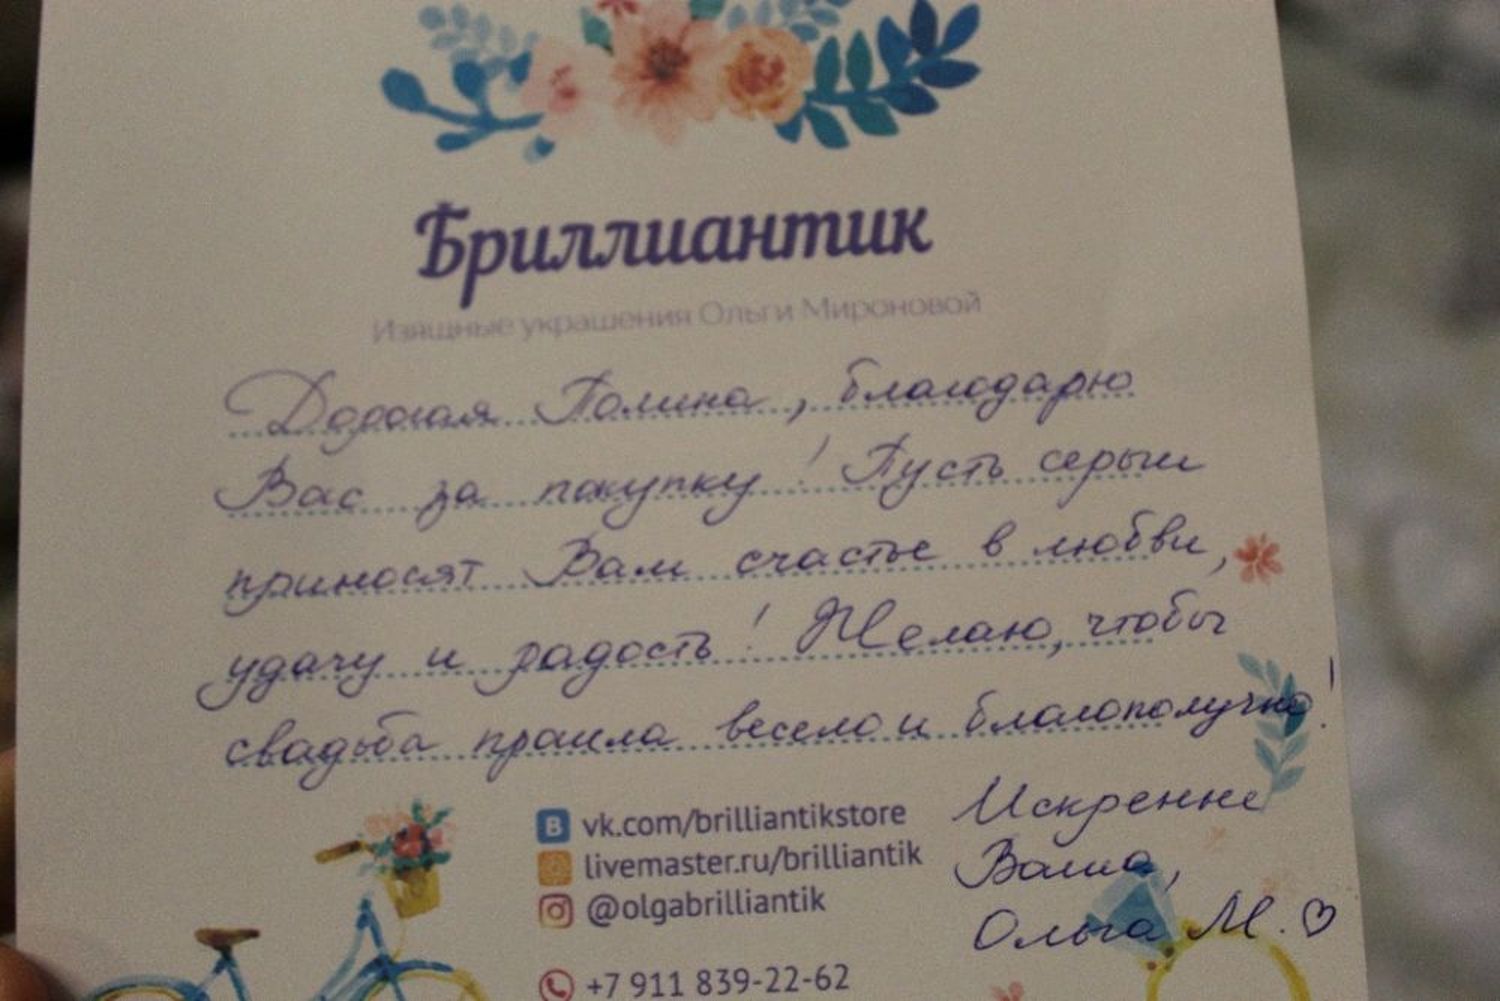 Бриллиантик
Изящные украшения Ольги Мироновой
Дорогая Полина, благодарю
Вас за покупку! Пусть серьги
приносят Вам счастье в любви,
удачу и радость! Желаю, чтобы
свадьба прошла весело и благополучно!
vk.com/brilliantikstore
livemaster.ru/brilliantik
@olgabrilliantik
+7 911 839-22-62
Искренне
Ваша,
Ольга М. ♡